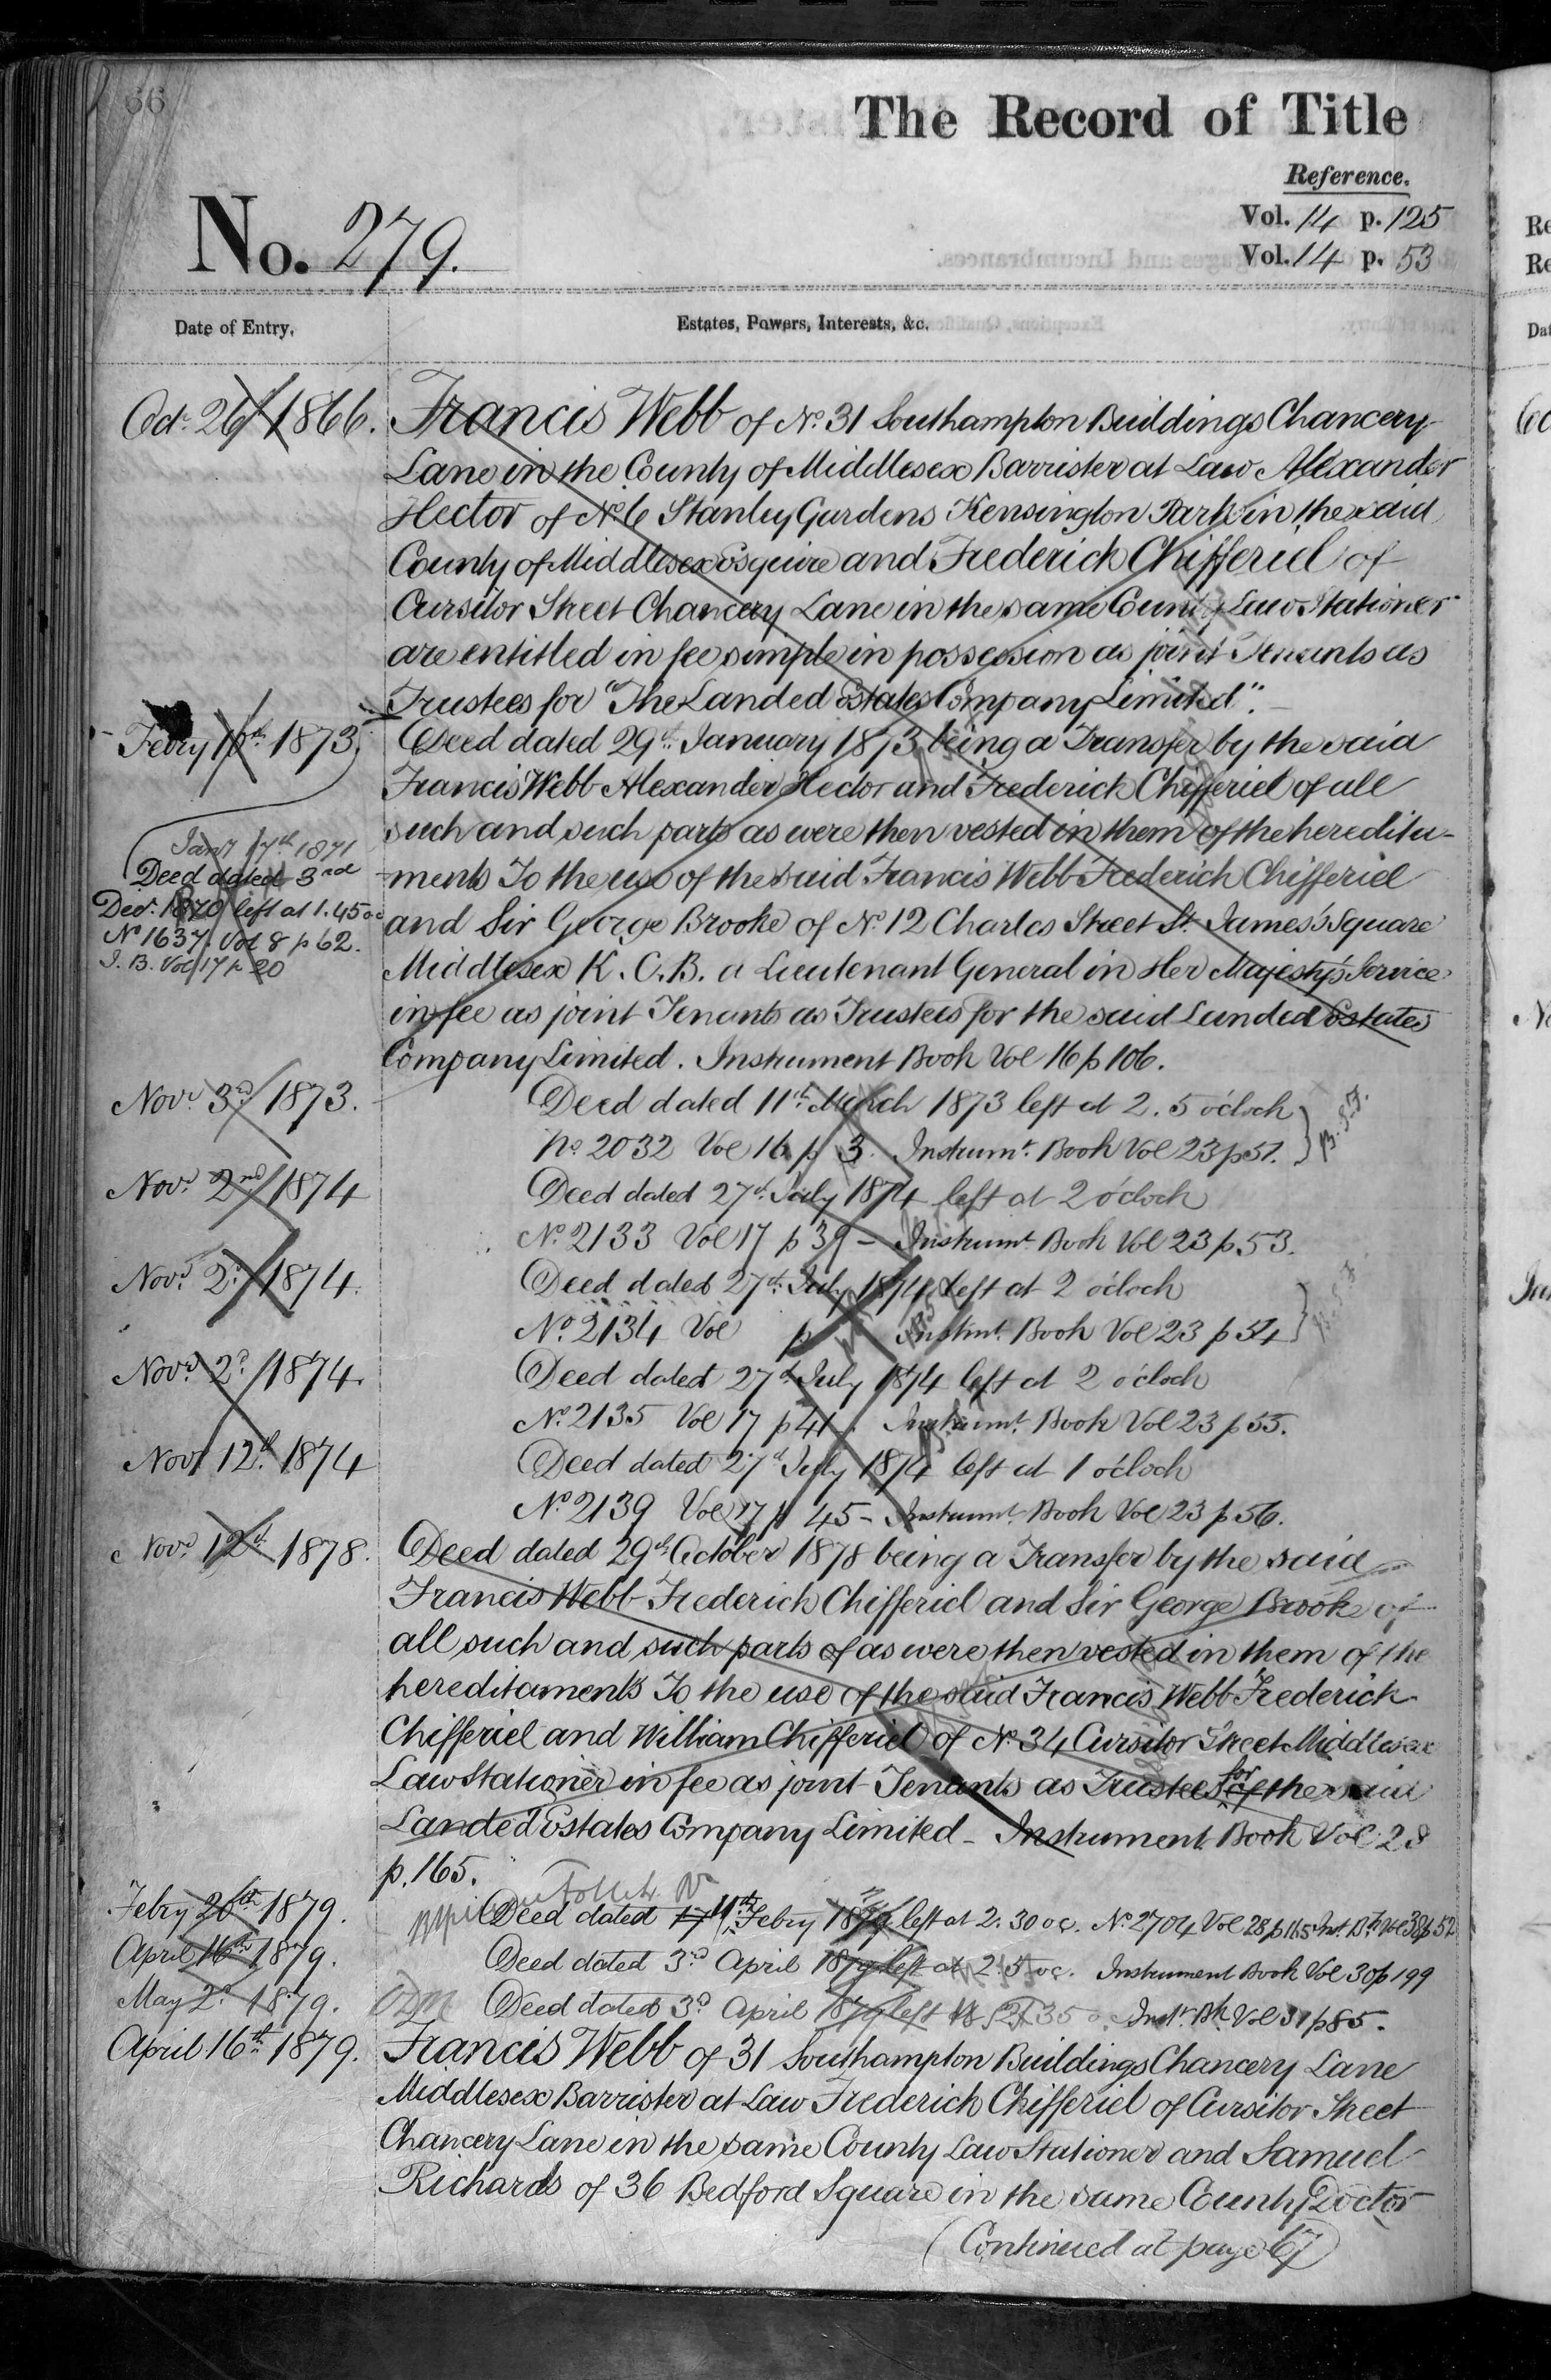 66
The Record of Title
Reference.
Vol. 14 p. 125
Vol. 14 p. 53
No. 279.
Date of Entry.
Estates, Powers, Interests, &c.
Oct. 26th 1866. Francis Webb of No. 31 Southampton Buildings Chancery
Lane in the County of Middlesex Barrister at Law Alexander
Hector of No. 6 Stanley Gardens Kensington Park in the said
County of Middlesex Esquire and Frederick Chifferiel of
Cursitor Street Chancery Lane in the same County Law Stationer
are entitled in fee simple in possession as joint Tenants as
Trustees for "The Landed Estates Company Limited".
Febry 1873. Deed dated 29th January 1873 being a Transfer by the said
Francis Webb Alexander Hector and Frederick Chifferiel of all
such and such parts as were then vested in them of the heredita-
ments To the use of the said Francis Webb Frederick Chifferiel
and Sir George Brooke of No. 12 Charles Street St. James's Square
Middlesex K.C.B. a Lieutenant General in Her Majesty's Service
in fee as joint Tenants as Trustees for the said Landed Estates
Company Limited. Instrument Book Vol 16 p 106.
Jany 17th 1871
Deed dated 3rd
Decr. 1870 left at 1.45 oc
No 1637. Vol 8 p 62.
I. B. Vol 17 p 20
Novr. 3rd 1873. Deed dated 11th March 1873 left at 2.5 o'clock
No. 2032 Vol 16 p 3. Instrumt. Book Vol 23 p 51.
Novr. 2nd 1874 Deed dated 27th July 1874 left at 2 o'clock
No. 2133 Vol 17 p 39 – Instrumt. Book Vol 23 p 53.
Novr. 2d 1874. Deed dated 27th July 1874 left at 2 o'clock
No. 2134 Vol p Instmt. Book Vol 23 p 54
Novr. 2d 1874. Deed dated 27th July 1874 left at 2 o'clock
No. 2135 Vol 17 p 41. Instrumt. Book Vol 23 p 55.
Novr 12th 1874 Deed dated 27th July 1874 left at 1 o'clock
No. 2139 Vol 17 p 45 – Instrumt. Book Vol 23 p 56.
Novr. 12th 1878. Deed dated 29th October 1878 being a Transfer by the said
Francis Webb Frederick Chifferiel and Sir George Brooke of
all such and such parts of as were then vested in them of the
hereditaments To the use of the said Francis Webb Frederick
Chifferiel and William Chifferiel of No. 34 Cursitor Street Middlesex
Law Stationer in fee as joint Tenants as Trustees of for the said
Landed Estates Company Limited – Instrument Book Vol. 28
p. 165.
Febry 20th 1879. Deed dated 17 11th Febry 1879 left at 2.30 oc. No. 2704 Vol 28 p 165 Inst. Bk Vol 30 p 52
April 16th 1879. Deed dated 3d April 1879 left at 2.5 oc. Instrument Book Vol 30 p 199
May 2d 1879. Deed dated 3d April 1879 left 35 Instr. Bk Vol 31 p 85.
April 16th 1879. Francis Webb of 31 Southampton Buildings Chancery Lane
Middlesex Barrister at Law Frederick Chifferiel of Cursitor Street
Chancery Lane in the same County Law Stationer and Samuel
Richards of 36 Bedford Square in the same County Doctor
(Continued at page 67)